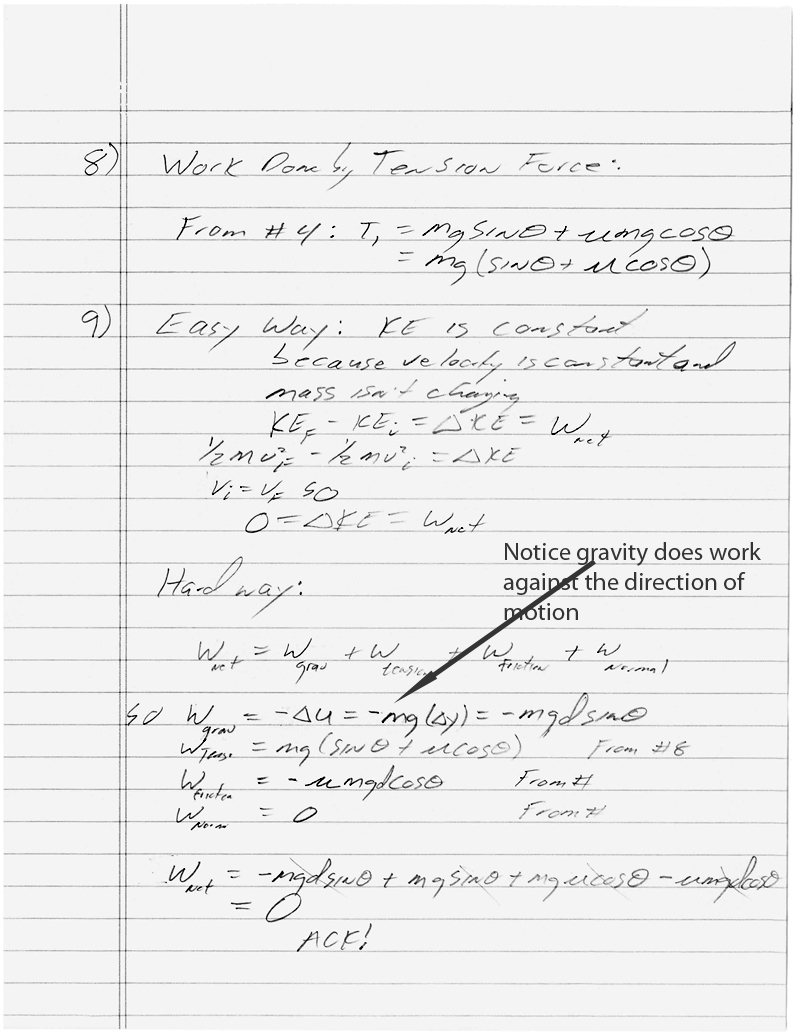 8) Work Done by Tension Force:
From #4: T₁ = mg sinθ + μmg cosθ
= mg (sinθ + μ cosθ)
9) Easy Way: KE is constant
because velocity is constant and
mass isn't changing
KE_F - KE_i = ΔKE = W_net
1/2 mv²_F - 1/2 mv²_i = ΔKE
v_i = v_F so
0 = ΔKE = W_net
Notice gravity does work
against the direction of
motion
Hard way:
W_net = W_grav + W_tension + W_friction + W_Normal
so W_grav = -ΔU = -mg(Δy) = -mgd sinθ
W_Tens. = mg (sinθ + μcosθ) From #8
W_friction = -μmgdcosθ From #
W_Norm = 0 From #
W_net = -mgd sinθ + mg sinθ + mg μcosθ - μmgdcosθ
= 0
ACK!